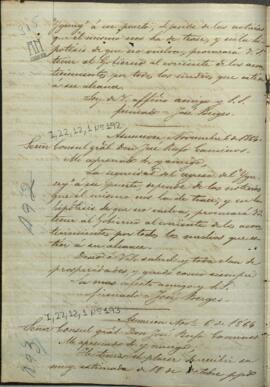 Ygurey" a ese puerto, depende de las noticias
que el mismo nos ha de traer, y en la hi-
pótesis de que no vuelva, procurará de S
tener al Gobierno al corriente de los acon-
tecimientos por todos los medios que estén
a su alcance.
Soy de V. affmo amigo y S.S.
firmado - José Berges.
I,22,12,1 Nº192
Asuncion Noviembre 6 de 1864.
Señor Consul gral. Don José Rufo Caminos.
Mi apreciado Sr y amigo.
La seguridad del regreso del "Ygu-
rey" a ese puerto, depende de las noticias
que el mismo nos ha de traer, y en la
hipótesis de que no vuelva, procurará
tener al Gobierno al corriente de los acon-
tecimientos por todos los medios que es-
tén a su alcance.
Deseo a Vd. salud y toda clase de
prosperidades y quedo como siempre
Su mas afecto amigo y S.S.
firmado José Berges.
I,22,12,1 Nº193
Asuncion Nov. 6 de 1864
Señor Consul gral. Don José Rufo Caminos
Mi apreciado Sr. y amigo.
He tenido el placer de recibir su
muy estimada de 18 de Octubre ppdo